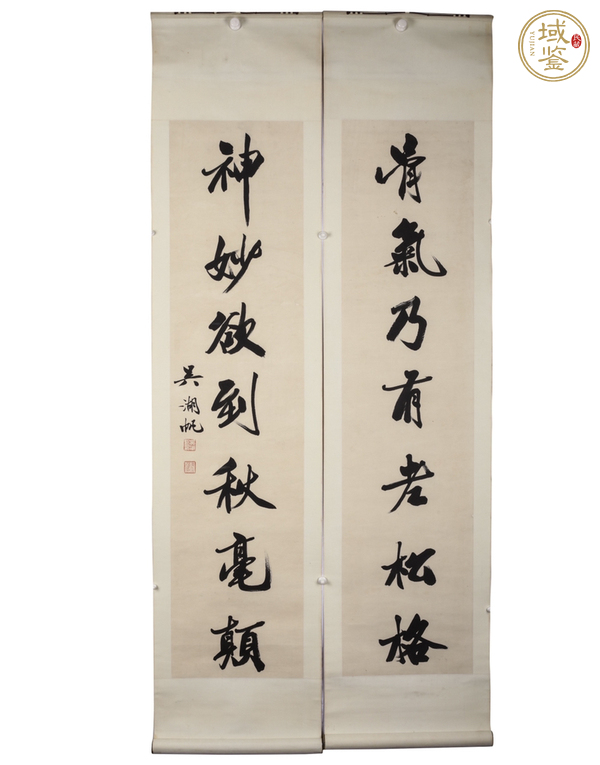 骨氣乃有老松格
神妙欲到秋毫顛
吳湖帆
域鉴
YUJIAN